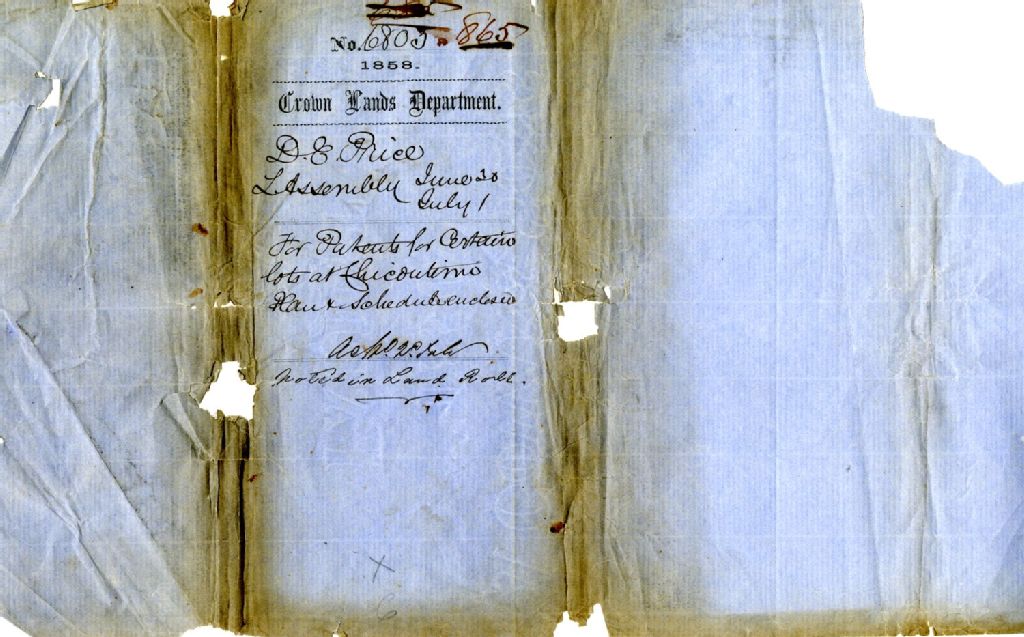 No. 6803 865
1858.
Crown Lands Department.
D. E. Price
L Assembly June 30
July 1
For Patents for Certain
lots at Chicoutimi
Plan & Schedule enclosed
Noted in Land Roll.